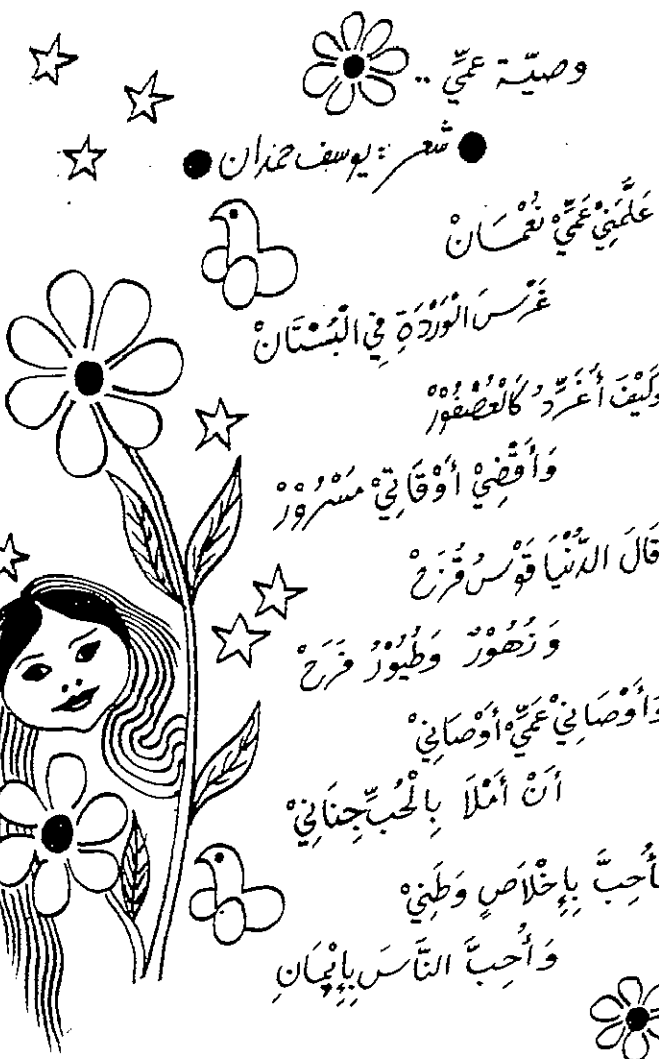 وصيّة عمّيِّ ..
شعر : يوسف حمدان
عَلَّمَنِيْ عَمِّيْ نُعْمَــانْ
غَرْسَ الْوَرْدَةِ فِي الْبُسْتَانْ
وَكَيْفَ أُغَرِّدُ كَالْعُصْفُوْرْ
وَأَقْضِيْ أَوْقَاتِيْ مَسْرُوْرْ
قَالَ الدُّنْيَا قَوْسُ قُزَحْ
وَزُهُوْرٌ وَطُيُوْرُ فَرَحْ
وَأَوْصَانِيْ عَمِّيْ أَوْصَانِيْ
أَنْ أَمْلَا بِالْحُبِّ جِنَانِيْ
أُحِبَّ بِإِخْلَاصٍ وَطَنِيْ
وَأُحِبَّ النَّاسَ بِإِيْمَانِ